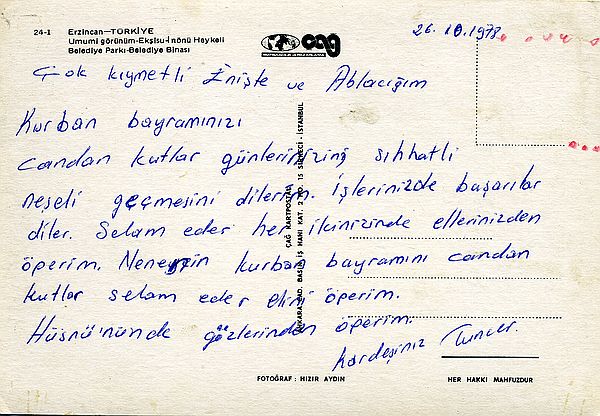 24-1 Erzincan—TÜRKİYE
Umumi görünüm-Ekşisu-İnönü Heykeli
Belediye Parkı-Belediye Binası
cag
26.10.1978
Çok kıymetli Enişte ve Ablacığım
Kurban bayramınızı
candan kutlar günlerinizing sıhhatli
neşeli geçmesini dilerim. İşlerinizde başarılar
diler. Selam eder her ikinizinde ellerinizden
öperim. Nenemizin kurban bayramını candan
kutlar selam eder elini öperim.
Hüsnü'nünde gözlerinden öperim.
Kardeşiniz Tuncer.
ÇAĞ KARTPOSTAL
ANKARA CAD. BASIN İŞ HANI KAT. 2 NO. 15 SİRKECİ - İSTANBUL
FOTOĞRAF : HIZIR AYDIN
HER HAKKI MAHFUZDUR